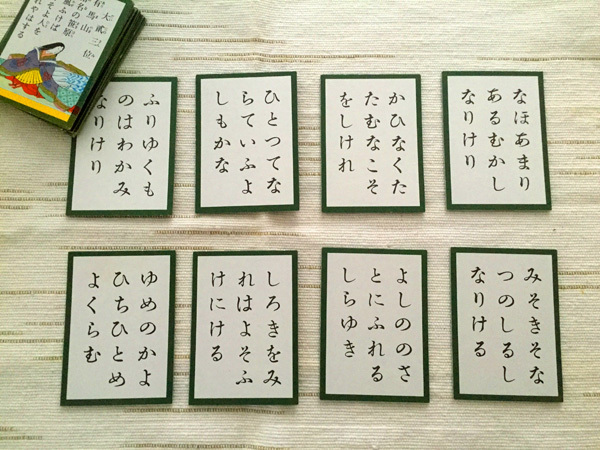 なほあまり
あるむかし
なりけり
かひなくた
たむなこそ
をしけれ
ひとつてな
らていふよ
しもかな
ふりゆくも
のはわかみ
なりけり
大貳三位
有馬山
名の笹原
風ふけば
そよ人を
れやはする
みそきそな
つのしるし
なりける
よしののさ
とにふれる
しらゆき
しろきをみ
れはよそふ
けにける
ゆめのかよ
ひちひとめ
よくらむ